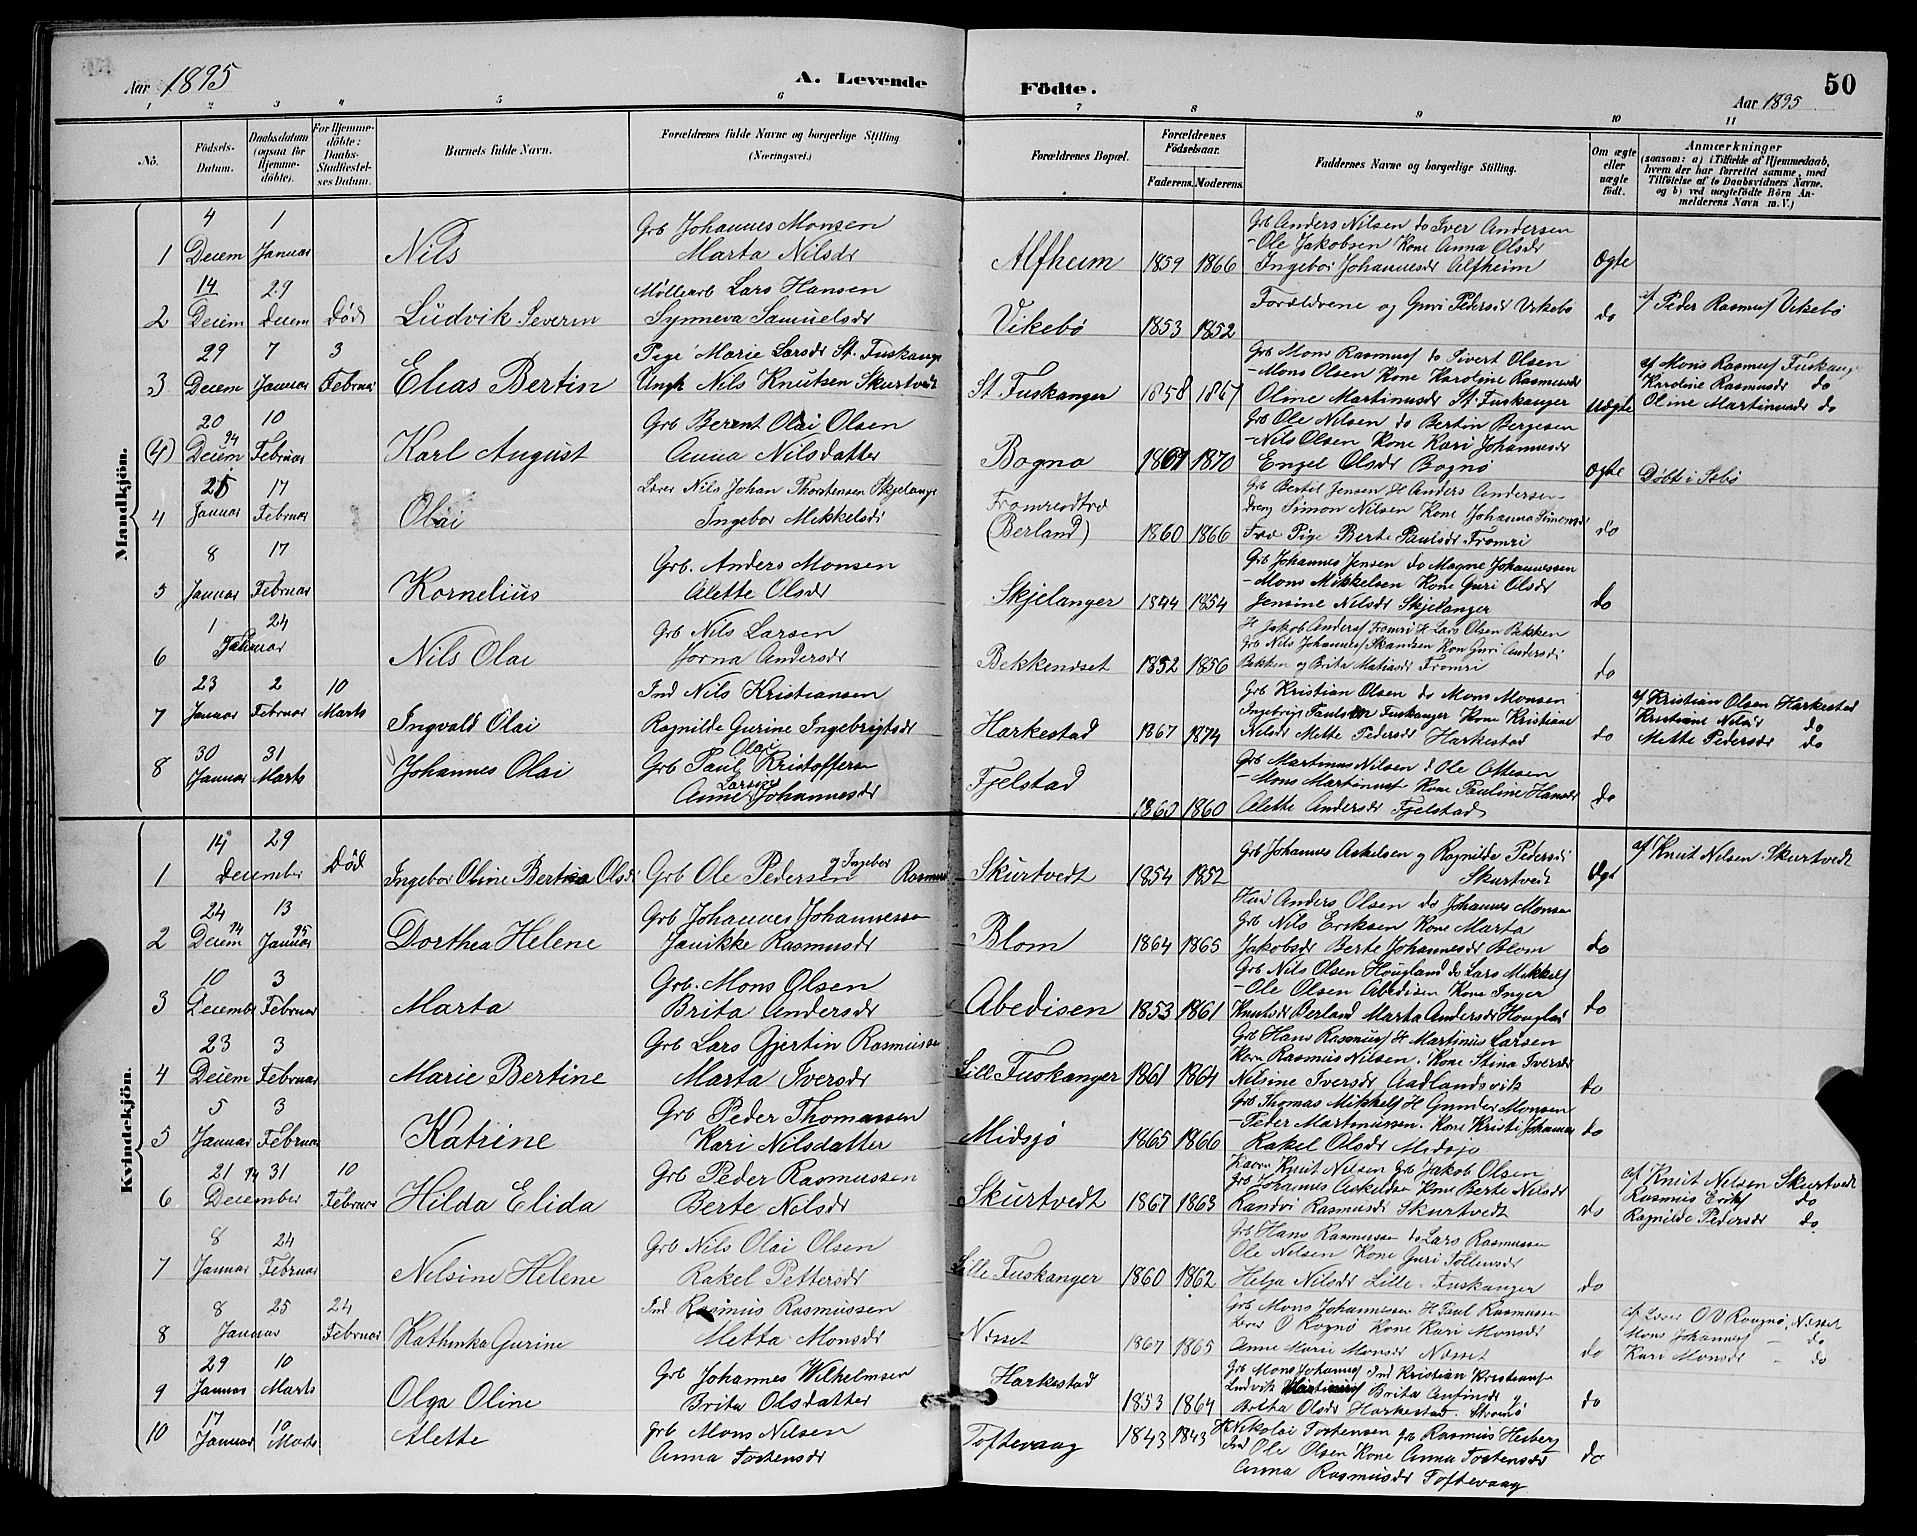 Aar 1895
A. Levende Födte.
Aar 1895
50
1 2 3 4 5 6 7 8 9 10 11
No.
Födsels-Datum.
Daabsdatum (ogsaa for Hjemme-döbte).
For Hjemme-döbte: Daabs-Stadfæstel-ses Datum.
Barnets fulde Navn.
Forældrenes fulde Navne og borgerlige Stilling (Næringsvei.)
Forældrenes Bopæl.
Forældrenes Födselsaar.
Faderens. Moderens.
Faddernes Navne og borgerlige Stilling.
Om ægte eller uægte födt.
Anmærkninger (saasom: a) i Tilfælde af Hjemmedaab, hvem der har forrettet samme, med Tilföielse af to Daabsvidners Navne, og b) ved uægtefödte Börn An-melderens Navn m. V.)
Mandkjön.
1 4 Decem 1 Januar Nils
Grb Johannes Monsen
Marta Nilsdr
Alfheim 1859 1866
Grb Anders Nilsen do Iver Andersen
- Ole Jakobsen Kone Anna Olsdr
Ingebor Johannesdr Alfheim
Ægte
2 14 Decem 29 Decem Död Ludvik Severin
Möllearb Lars Hansen
Synneva Samuelsdr
Vikebø 1853 1852
Forældrene og Guri Pedersdr Vikebø
do
af Peder Rasmus Vikebø
3 29 Decem 7 Januar 3 Februar Elias Bertin
Pige Marie Larsdr St. Fuskange
Ungk Nils Knutsen Skurtvedt
St Fuskanger 1858 1867
Grb Mons Rasmus do Sivert Olsen
- Mons Olsen Kone Karoline Rasmusdr
Oline Martinusdr St. Fuskanger
Uægte
af Mons Rasmus Fuskang
Karoline Rasmusdr do
Oline Martinusdr do
(4) 20 Decem 94 10 Februar Karl August
Grb Bernt Olai Olsen
Anna Nilsdatter
Bognø 1867 1870
Grb Ole Nilsen do Bertin Bergesen
- Nils Olsen Kone Kari Johannesdr
Engel Olsdr Bognø
Ægte
Döbt i Sæbø
4 25 Januar 17 Februar Olai
Lærer Nils Johan Thorstensen Skjelange
Ingebor Mikkelsdr
Fromreidtræ
(Berland) 1860 1866
Grb Bertil Jensen H Anders Andersen
Dreng Simon Nilsen Kone Johanna Simonsdr
Pige Berte Paulsdr Fromri
do
5 8 Januar 17 Februar Kornelius
Grb. Anders Monsen
Alette Olsdr
Skjelanger 1844 1854
Grb Johannes Jensen do Magne Johannessen
- Mons Mikkelsen Kone Guri Olsdr
Jensine Nilsdr Skjelanger
do
6 1 24 Februar Nils Olai
Grb Nils Larsen
Jorna Andersdr
Bekkenæset 1852 1856
H Jakob Anders Fromri H Lars Olsen Bekken
Grb Nils Johannes Skandsen Kon Guri Andersdr
Bekken og Brita Matiasdr Fromri
do
7 23 Januar 2 Februar 10 Marts Ingvald Olai
Ind Nils Kristiansen
Ragnilde Gurine Ingebrigtsdr
Harkestad 1867 1874
Grb Kristian Olsen do Mons Monsen
Ingebrigt Pauls Fuskanger Kone Kristiane
Nilsdr Mette Pedersdr Harkestad
do
af Kristian Olsen Harkestad
Kristiane Nilsdr do
Mette Pedersdr do
8 30 Januar 31 Marts Johannes Olai
Grb Paul Olai Kristoffersen
Anne Larsine Johannesdr
Fjelstad 1860 1860
Grb Martinus Nilsen d Ole Ottesen
- Mons Martinus Kone Pauline Hansdr
Alette Andersdr Fjelstad
do
Kvindekjön.
1 14 29 December Död Ingebor Oline Bertina Olsdr
Grb Ole Pedersen og Ingebor Rasmus
Skurtvedt 1854 1852
Grb Johannes Askelsen og Ragnilde Pedersdr
Skurtvedt
Ægt
af Knut Nilsen Skurtvedt
2 24 Decem 94 13 Januar 95 Dorthea Helene
Grb Johannes Johannessen
Janikke Rasmusdr
Blom 1864 1865
Anders Olsen do Johannes Monsen
Grb Nils Eriksen Kone Marta
Jakobsdr Berte Johannesdr Blom
do
3 10 December 3 Februar Marta
Grb. Mons Olsen
Brita Andersdr
Abedisen 1853 1861
Grb Nils Olsen Hougland do Lars Mikkels
- Ole Olsen Abedisen Kone Inger
Knutsdr Berland Marta Andersdr Hougland
do
4 23 Decem 3 Februar Marie Bertine
Grb Lars Gjertin Rasmussen
Marta Iversdr
Lille Fuskanger 1861 1864
Grb Hans Rasmus H Martinus Larsen
Rasmus Nilsen. Kone Stina Iversdr
Nilsine Iversdr Aadlandsvik
do
5 5 Januar 3 Februar Katrine
Grb Peder Thomassen
Kari Nilsdatter
Midsjø 1865 1866
Grb Thomas Mikkels H Gunder Monsen
- Peder Martinussen. Kone Kristi Johannes
Rakel Olsdr Midsjø
do
6 21 94 31 December 10 Februar Hilda Elida
Grb Peder Rasmussen
Berte Nilsdr
Skurtvedt 1867 1863
Knut Nilsen Grb Jakob Olsen
Grb Johannes Askeldsen Kone Berte Nilsdr
Randvi Rasmusdr Skurtvedt
do
af Knut Nilsen Skurtvedt
Rasmus Eriks do
Ragnilde Pedersdr do
7 8 Januar 24 Februar Nilsine Helene
Grb Nils Olai Olsen
Rakel Pettersdr
Lille Fuskanger 1860 1862
Grb Hans Rasmussen do Lars Rasmussen
Ole Nilsen Kone Guri Tollevsdr
Helja Nilsdr Lille Fuskanger
do
8 8 25 Januar 24 Februar Kathinka Gurine
Ind Rasmus Rasmussen
Metta Monsdr
Næset 1867 1865
Grb Mons Johannessen H Paul Rasmussen
Lærer O Rognø Kone Kari Monsdr
Anne Marie Monsdr Næset
do
af Lærer O O Rongnø, Næset
Mons Johannes - do
Kari Monsdr - do
9 29 Januar 10 Marts Olga Oline
Grb Johannes Wilhelmsen
Brita Olsdatter
Harkestad 1853 1864
Grb Mons Johannes Ind Kristian Kristians
Ludvik Martinus Brita Anfinsdr og
Brtha Olsdr Harkestad. Strømø
do
10 17 Januar 10 Marts Alette
Grb Mons Nilsen
Anna Tostensdr
Toftevaag 1843 1843
H Nikolai Tostensen grb Rasmus Hesberg
Ind Ole Olsen Kone Anna Tostensdr
Anna Rasmusdr Toftevaag
do